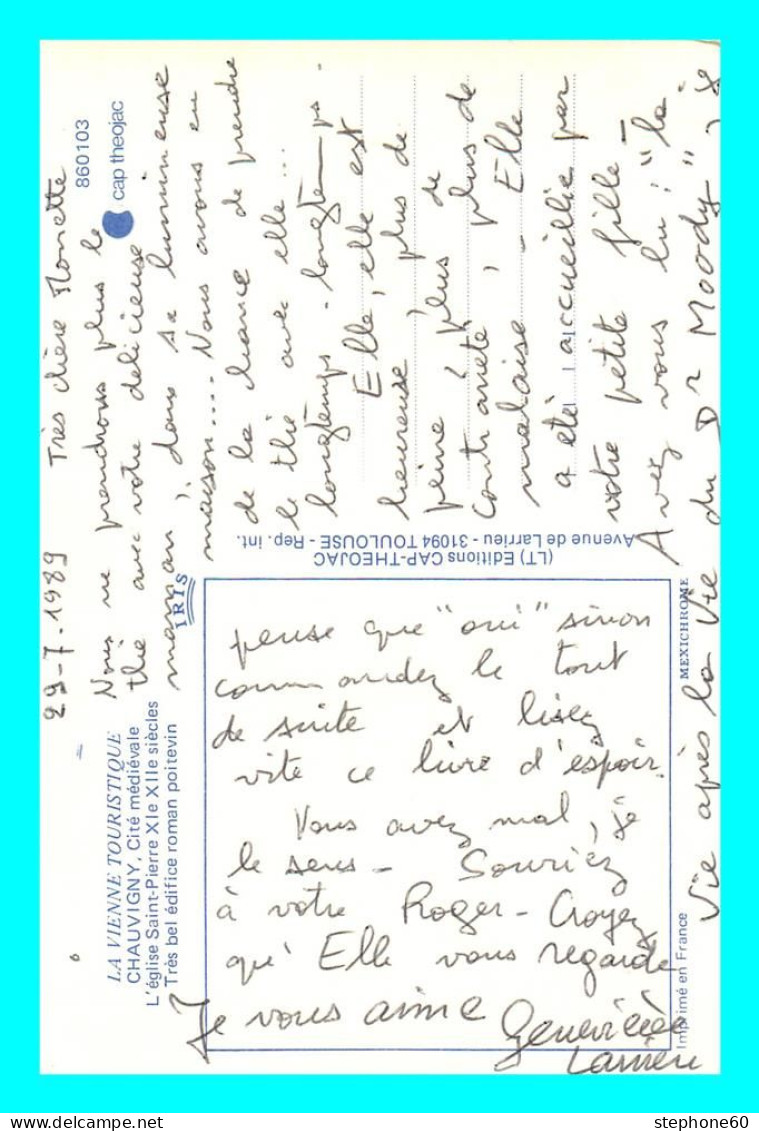 29-7-1989 Très chère Monette
Nous ne prendrons plus le
thé avec votre délicieuse
maman, dans sa lumineuse
maison.... Nous avons eu
de la chance de prendre
le thé avec elle...
longtemps - longtemps -
Elle, elle est
heureuse, plus de
peine, plus de
contrariété, plus de
malaise - Elle
a été accueillie par
votre petite fille -
Avez vous lu : "la
Vie après la Vie du Dr Moody" je
pense que "oui" sinon
commandez le tout
de suite et lisez
vite ce livre d'espoir.
Vous avez mal, je
le sens - Souriez
à votre Roger - Croyez
qu' Elle vous regarde
Je vous aime
Geneviève
LA VIENNE TOURISTIQUE
CHAUVIGNY, Cité médiévale
L'église Saint-Pierre XIe XIIe siècles
Très bel édifice roman poitevin
IRIS
860103
cap theojac
(LT) Editions CAP-THEOJAC
Avenue de Larrieu - 31094 TOULOUSE - Rep. int.
MEXICHROME
Imprimé en France
stephone60